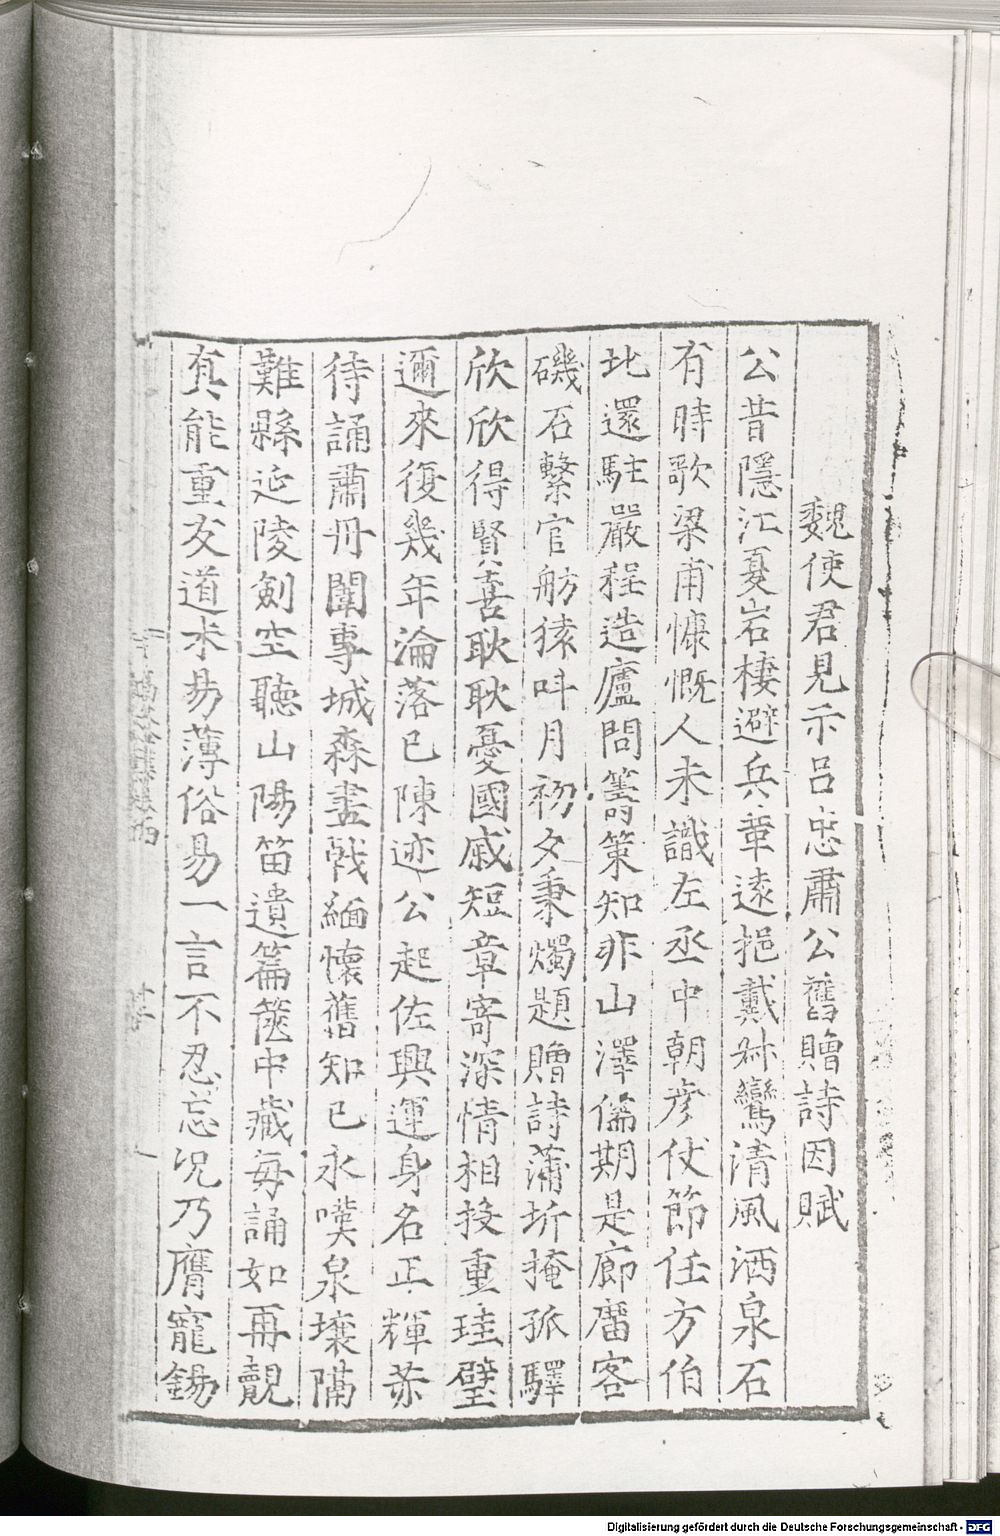 魏使君見示呂忠肅公舊贈詩因賦
公昔隱江夏岩棲避兵革遠挹戴叔鸞清風洒泉石
有時歌梁甫慷慨人未識左丞中朝彥仗節任方伯
北還駐嚴程造廬問籌策知非山澤儔期是廊廟客
磯石繫官舫猿呌月初夕秉燭題贈詩蒲圻掩孤驛
欣欣得賢喜耿耿憂國戚短章寄深情相投重珪璧
邇來復幾年淪落已陳迹公起佐興運身名正輝赤
待誦肅冊闈專城森畫戟緬懷舊知己永嘆泉壤隔
難縣延陵劍空聽山陽笛遺篇篋中藏每誦如再覿
真能重友道求易薄俗易一言不忍忘况乃膺寵錫
Digitalisierung gefördert durch die Deutsche Forschungsgemeinschaft - DFG